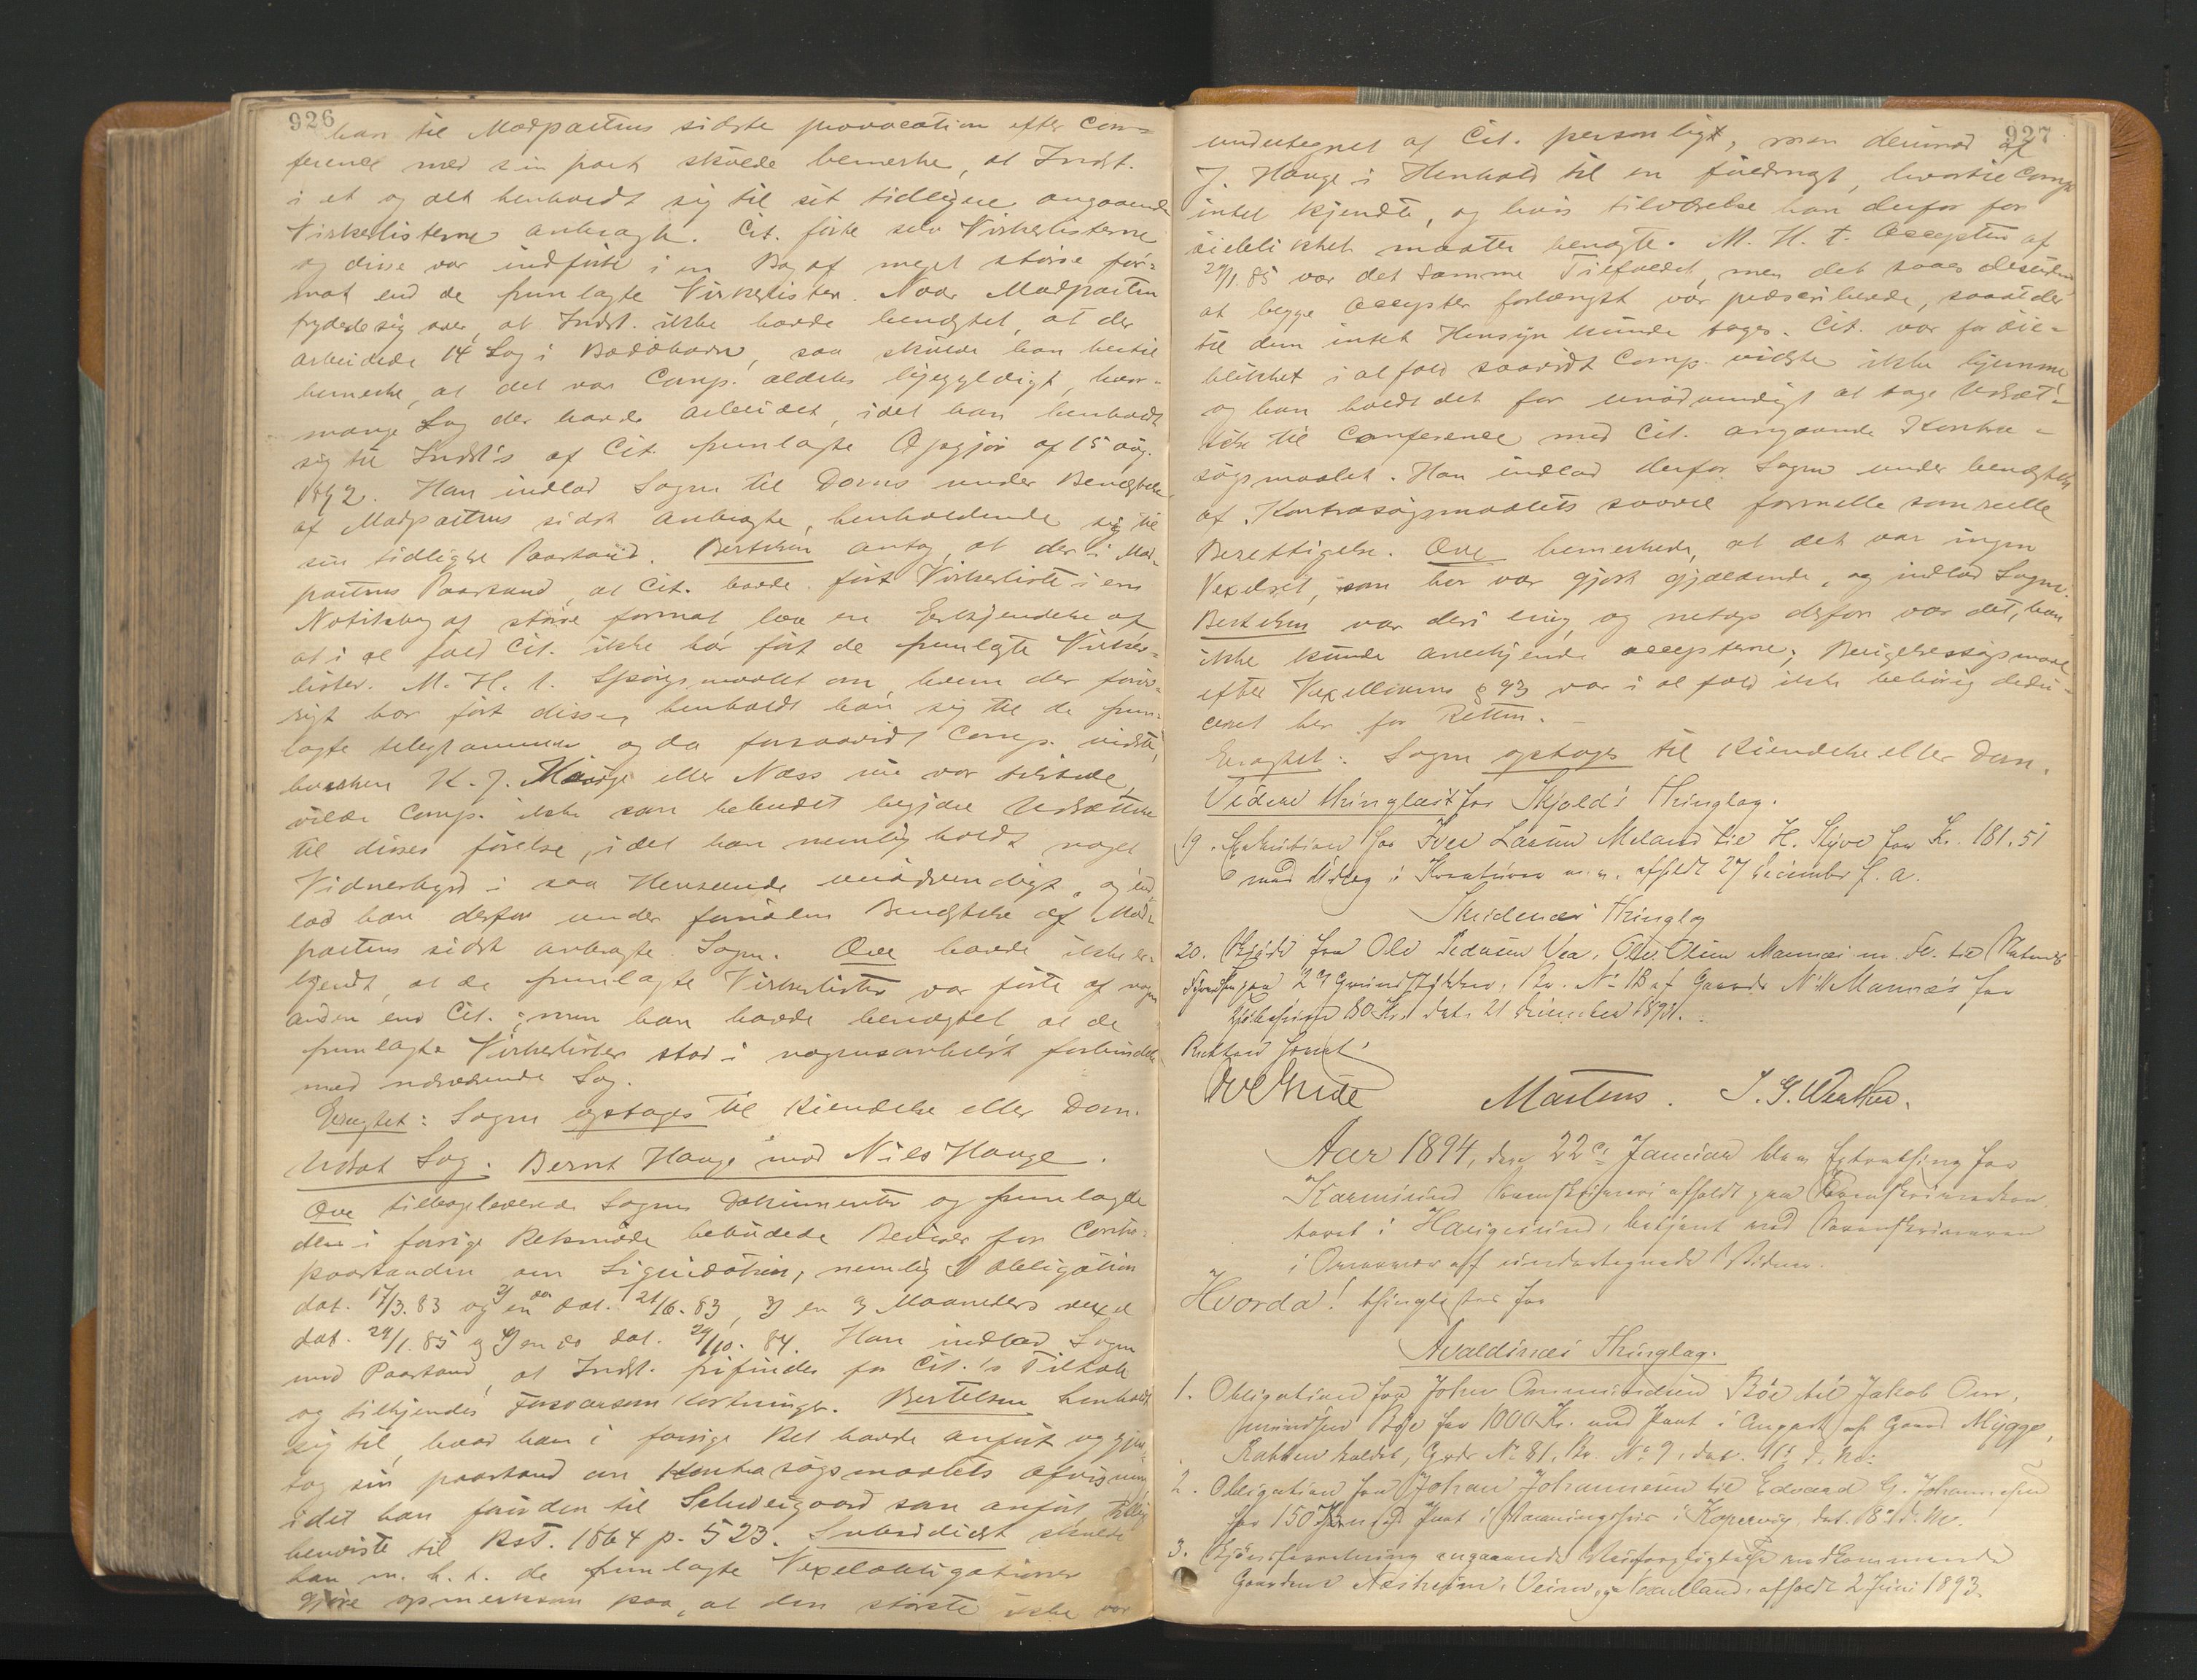 926
han til Modpartens sidste provocation efter Con-
ference med sin part skulde bemerke, at Indst.
i et og alt henholdt sig til sit tidligere angaaende
Virkerlisterne anbragte. Cit. førte selv Virkerlisterne
og disse var indført i en Bog af meget større for-
mat end de fremlagte Virkerlister. Naar Modparten
frydede sig over, at Indst. ikke havde benægtet, at der
arbeidede 14 Lag i , saa skulde han hertil
bemerke, at det var Comp. aldeles ligegyldigt, hvor-
mange Lag der havde arbeidet, idet han henholdt
sig til Indst's af Cit. fremlagte Opgjør af 15 aug.
1892. Han indlod Sagen til Doms under Benægtelse
af Modpartens sidst anbragte, henholdende sig til
sin tidligere Paastand. Bertelsen antog, at der i Mod-
partens Paastand, at Cit. havde ført Virkerliste i en
Notitsbog af større format laa en Erkjendelse af
at i al fald Cit. ikke har ført de fremlagte Virker-
lister. M. H. t. Spørgsmaalet om, hvem der forøv-
rigt har ført disse, henholdt han sig til de frem-
lagte telegrammer og da forsaavidt Comp. vidste,
hverken K. J. Hauge eller Næss nu var tilstede,
vilde Comp. ikke som bebudet begjære Udsættelse
til disses førelse, idet han nemlig holdt noget
Vidnesbyrd i saa Henseende unødvendigt, og ind-
lod han derfor under fornøden Benægtelse af Mod-
partens sidst anbragte Sagen. Ove havde ikke er-
kjendt, at de fremlagte Virkerlister var førte af nogen
anden end Cit.; men han havde benægtet, at de
fremlagte Virkerlister stod i nogensomhelst forbindelse
med nærværende Sag.
Eragtet: Sagen optages til Kiendelse eller Dom.
Udsat Sag. Bernt Hauge mod Niels Hauge.
Ove tilbageleverede Sagens Dokumenter og fremlagde
de i forrige Retsmøde bebudede Beviser for Contra-
paastanden om Liquidation, nemlig 1) Obligation
dat. 17/3.83 og 2) en do dat. 21/6.83, 3) en 3 Maaneders vexel
dat. 29/1.85 og 4) en do dat. 29/10.84. Han indlod Sagen
med Paastand, at Indst. frifindes for Cit.'s Tiltale
og tilkjendes Forsvarsomkostninger. Bertelsen henholdt
sig til, hvad han i forrige Ret havde anført og gjen-
tog sin paastand om Kontrasøgsmaalets afvisning
idet han foruden til Schweigaard som anført, tillige
henviste til Rst. 1864 p. 523. Subsidiært skulde
han m. h. t. de fremlagte Vexelobligationer
gjøre opmerksom paa, at den største ikke var
927
undertegnet af Cit. personligt, men derimod af
J. Hauge i Henhold til en fuldmagt, hvortil Comp.
intet kjendte, og hvis tilværelse han derfor for
øieblikket maatte benægte. M. H. t. Accepten af
29/1.85 var det samme Tilfældet, men det saaes desuden
at begge Accepter forlængst var præscriberede, saa at der
til dem intet Hensyn kunde tages. Cit. var for øie-
blikket i al fald saavidt Comp. vidste ikke hjemme
og han holdt det for unødvendigt at tage Udsæt-
telse til Conference med Cit. angaaende Kontra-
søgsmaalet. Han indlod derfor Sagen under benægtelse
af Kontrasøgsmaalets saavel formelle som reelle
Berettigelse. Ove bemerkede, at det var ingen
Vexelret, som her var gjort gjældende, og indlod Sagen.
Bertelsen var deri enig, og netop derfor var det, han
ikke kunde anerkjende accepterne; Berigelsessøgsmaal
efter Vexellovens § 93 var i al fald ikke behørig dedu-
ceret her for Retten. –
Eragtet: Sagen optages til Kiendelse eller Dom.
Videre thinglæst for Skjold's Thinglag.
19. Exekution hos Iver Larsen Meland til H. Skjve for Kr. 181.51
med Udlæg i Kreaturer m. m. afholdt 27 december f. a.
Skudenæs Thinglag
20. Skjøde fra Ole Pedersen Vea, Ole Olsen Mannes m. fl. til
 paa 2 Grundstykker, Br. No 18 af Gaards No 11 Mannes for
 80 Kr. dat. 21 December 1891.
Retten hævet.
Martens. J. G. 
Aar 1894, den 22de Januar blev Extrathing for
Karmsund Sorenskriveri afholdt paa Sorenskriverkon-
toret i Haugesund, betjent med Sorenskriveren
i Overvær af undertegnede Vidner.
Hvorda! thinglæstes for
Avaldsnæs Thinglag.
1. Obligation fra John Ommundsen Bøe til Jakob Om-
mundsen Bøe for 1000 Kr. med Pant i Anpart af Gaard Mygge,
Rabben kaldet, Gards No 81, Br. No 9, dat. 11 d. Md.
2. Obligation fra Johan Johannesen til Edvard G. Johannesen
for 150 Kr. med Pant i Vaaningshus i Kopervig, dat. 18 d. M.
3. Skjønsforretning angaaende vedkommende
Gaardene Næsheim, Veim og , afholdt 2 Juni 1893.